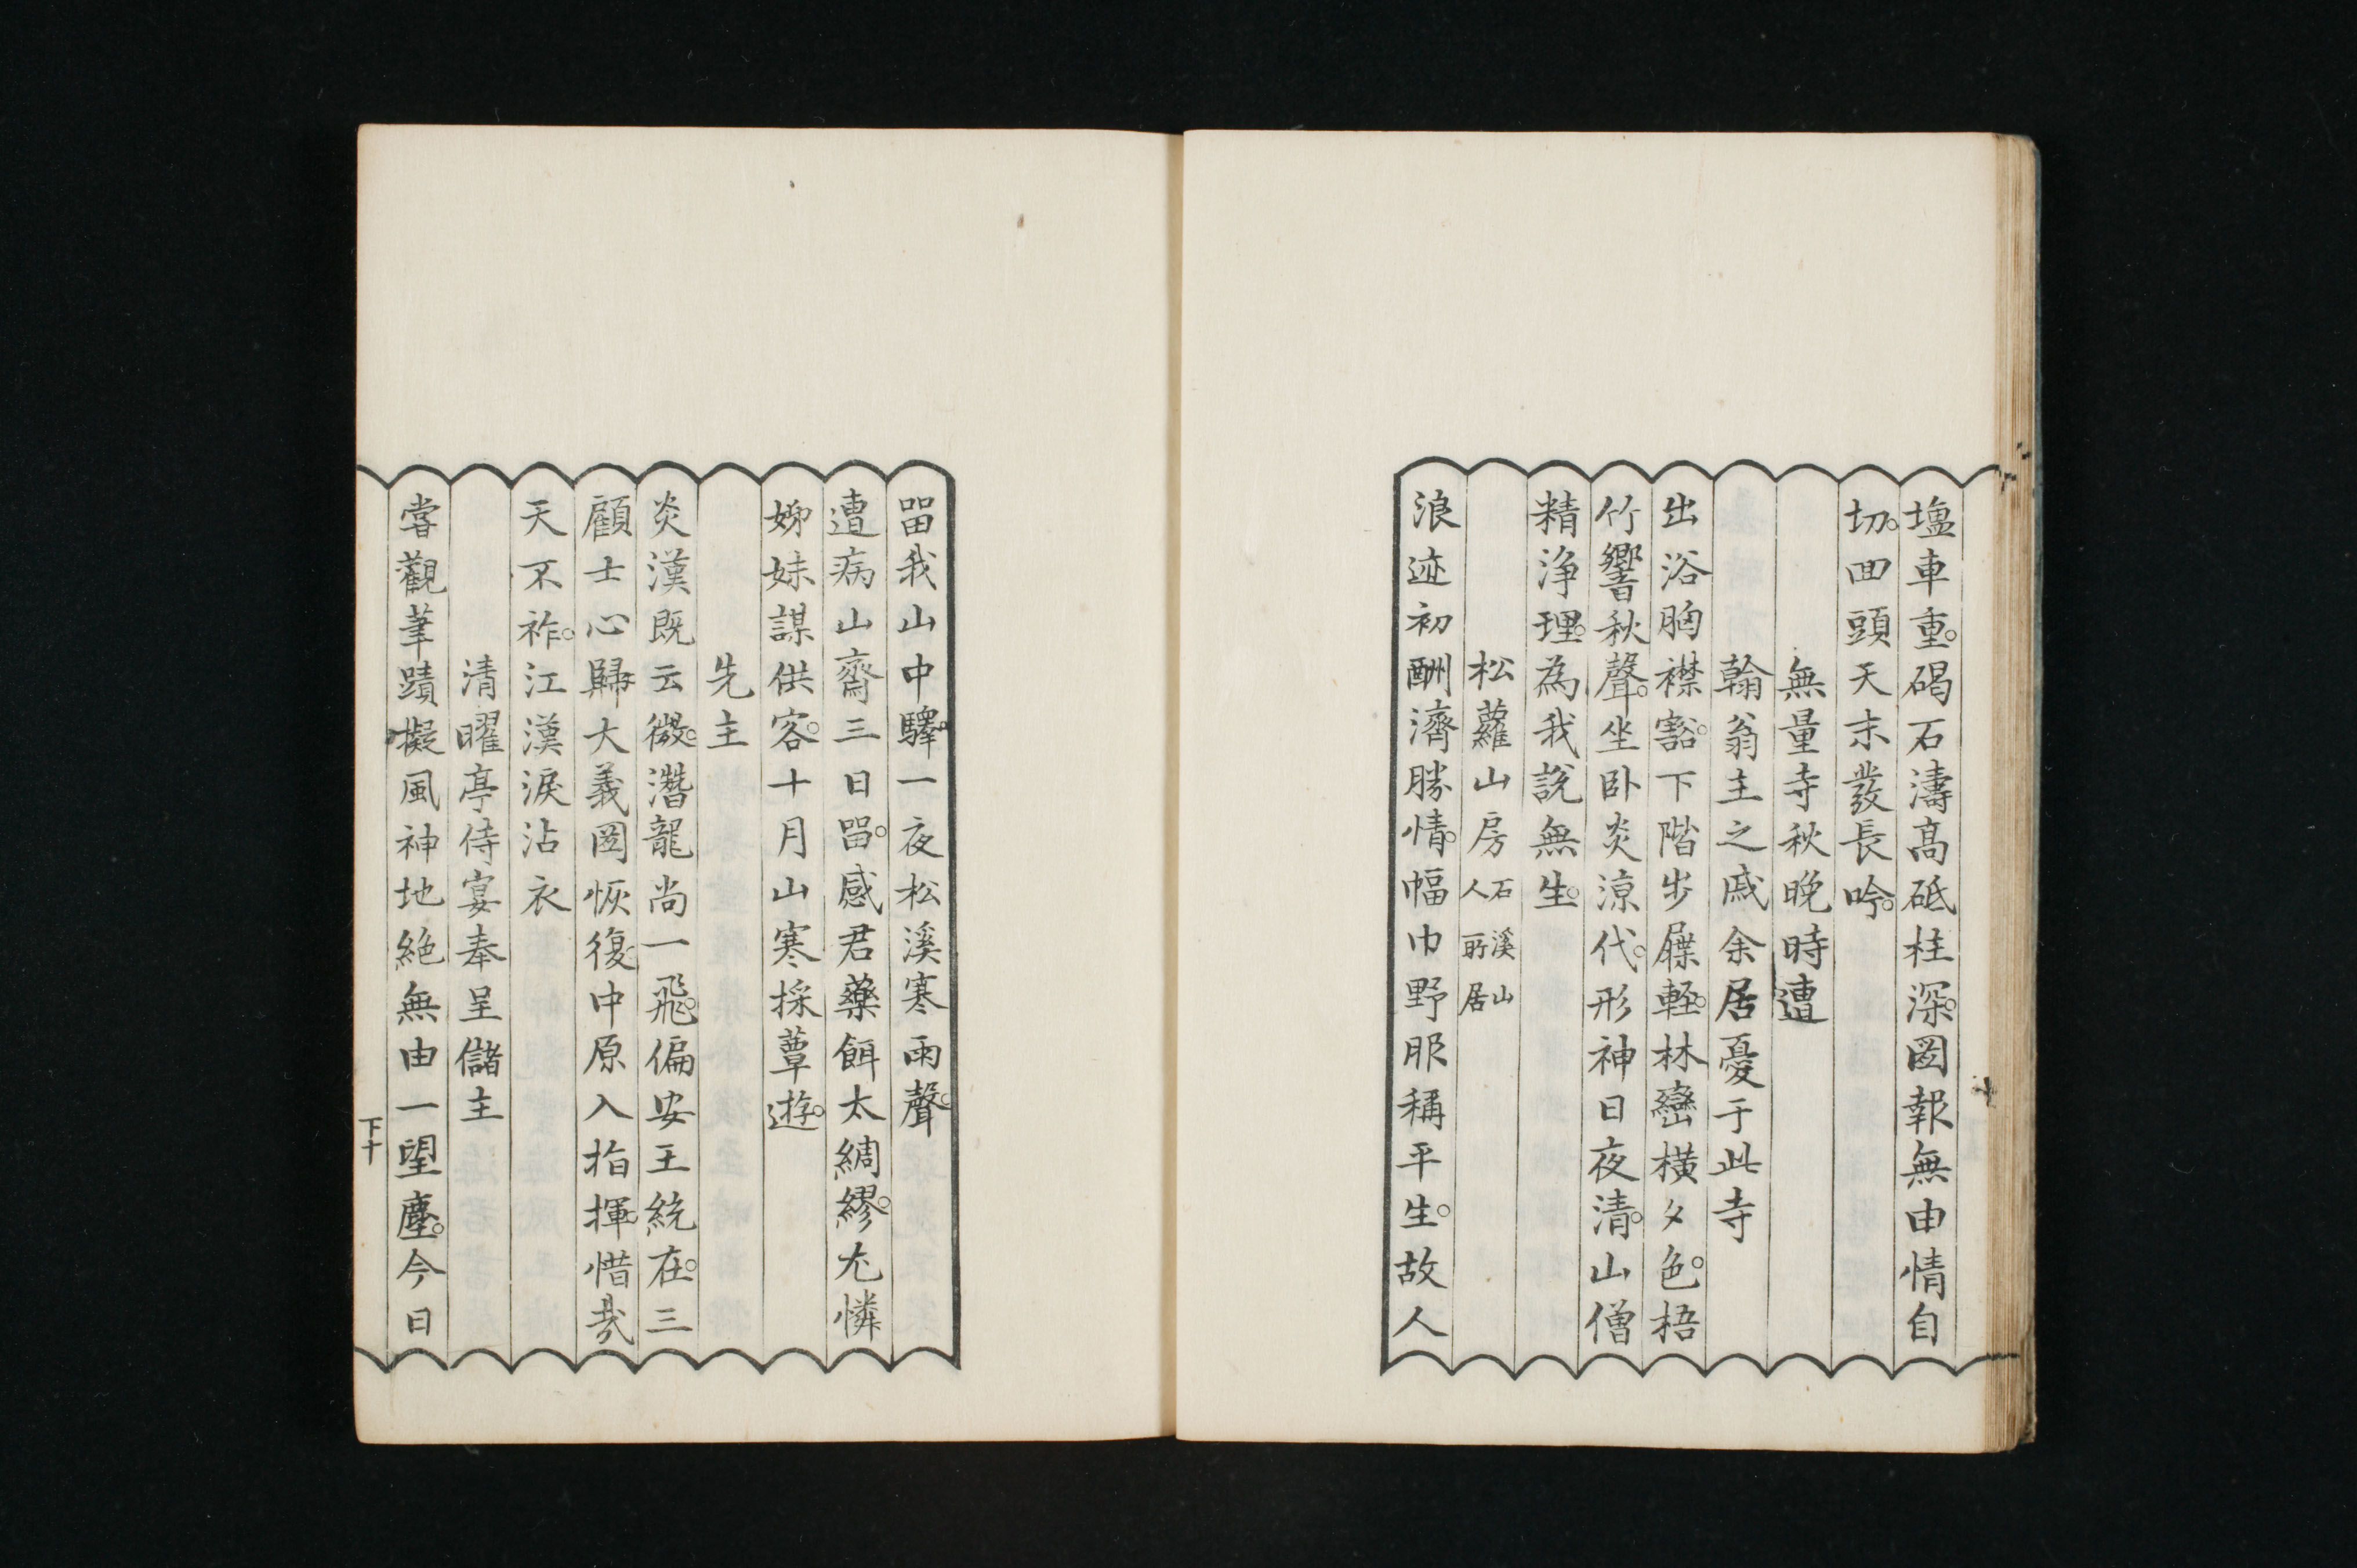 塩車重。碣石濤高砥柱深。圖報無由情自
切。回頭天末發長吟。
無量寺秋晚時遭
翰翁主之戚余居憂于此寺
出浴胸襟豁。下階步屧輕。林巒橫夕色。梧
竹響秋聲。坐卧炎涼代。形神日夜清。山僧
精浄理。為我說無生。
松蘿山房石溪山人所居
浪迹初酬濟勝情。幅巾野服稱平生。故人
畱我山中驛。一夜松溪寒雨聲。
遭病山齋三日畱。感君藥餌太綢繆。尤憐
姊妹謀供客。十月山寒採蕈遊。
先主
炎漢既云微。潛龍尚一飛。偏安王統在。三
顧士心歸。大義圖恢復。中原入指揮。惜哉
天不祚。江漢淚沾衣
清曜亭侍宴奉呈儲主
嘗觀筆蹟擬風神地絕無由一望塵。今日
下十